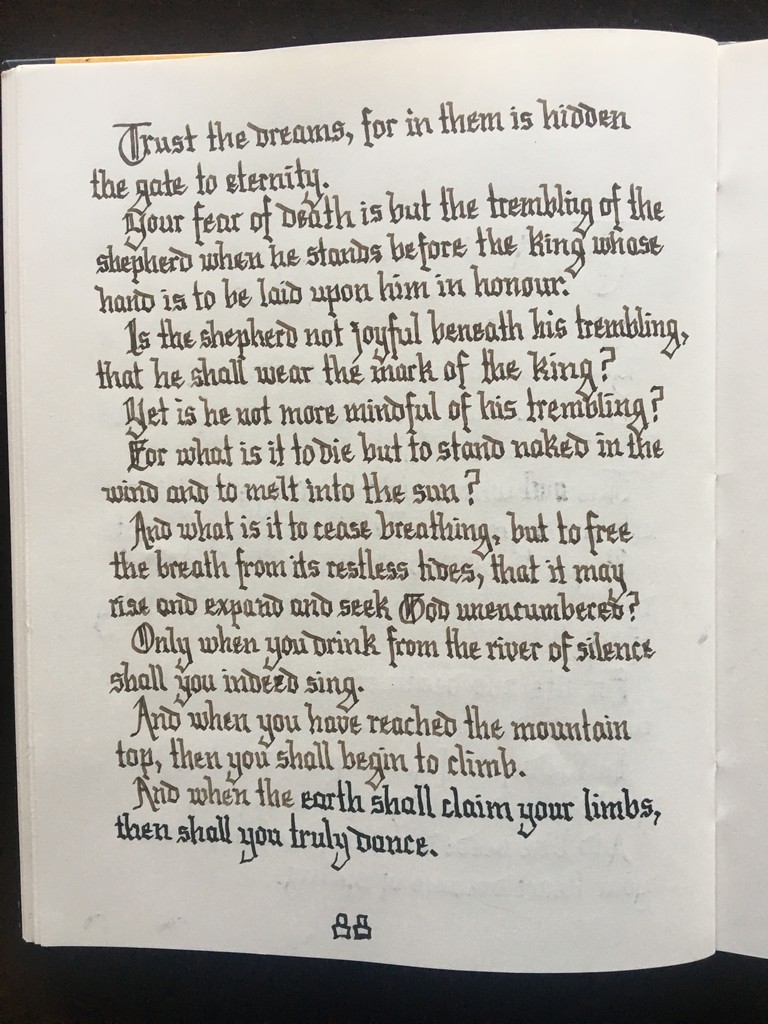 Trust the dreams, for in them is hidden
the gate to eternity.
Your fear of death is but the trembling of the
shepherd when he stands before the king whose
hand is to be laid upon him in honour.
Is the shepherd not joyful beneath his trembling,
that he shall wear the mark of the king?
Yet is he not more mindful of his trembling?
For what is it to die but to stand naked in the
wind and to melt into the sun?
And what is it to cease breathing, but to free
the breath from its restless tides, that it may
rise and expand and seek God unencumbered?
Only when you drink from the river of silence
shall you indeed sing.
And when you have reached the mountain
top, then you shall begin to climb.
And when the earth shall claim your limbs,
then shall you truly dance.
88